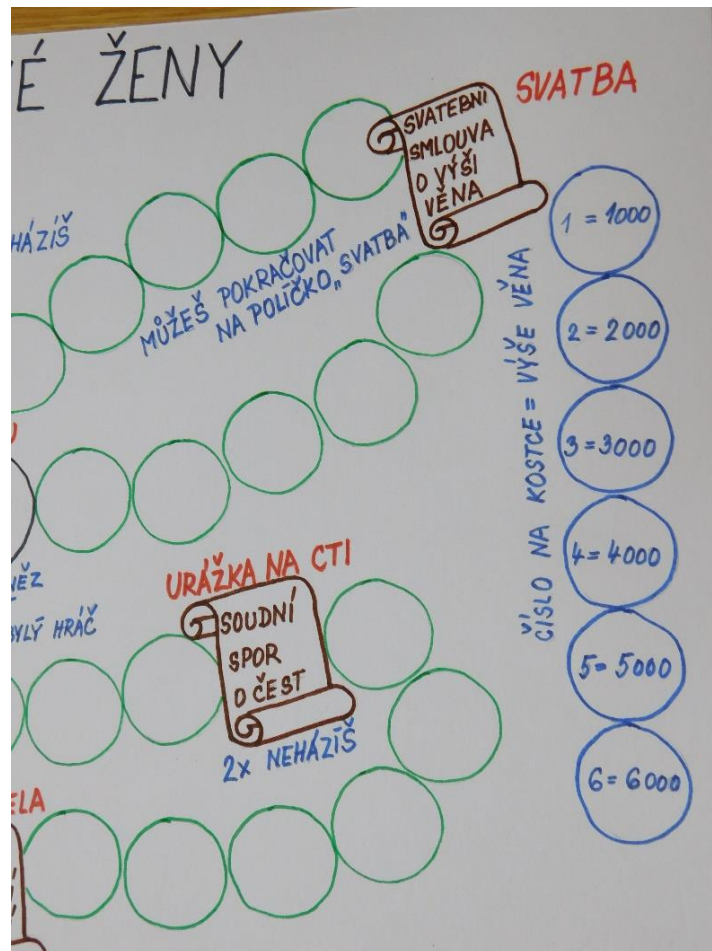 É ŽENY
SVATBA
SVATEBNÍ
SMLOUVA
O VÝŠI
VĚNA
HÁZÍŠ
MŮŽEŠ POKRAČOVAT
NA POLÍČKO „SVATBA"
ČÍSLO NA KOSTCE = VÝŠE VĚNA
1 = 1000
2 = 2000
3 = 3000
4 = 4000
5 = 5000
6 = 6000
U
NĚZ
BYLÝ HRÁČ
URÁŽKA NA CTI
SOUDNÍ
SPOR
O ČEST
2x NEHÁZÍŠ
ELA